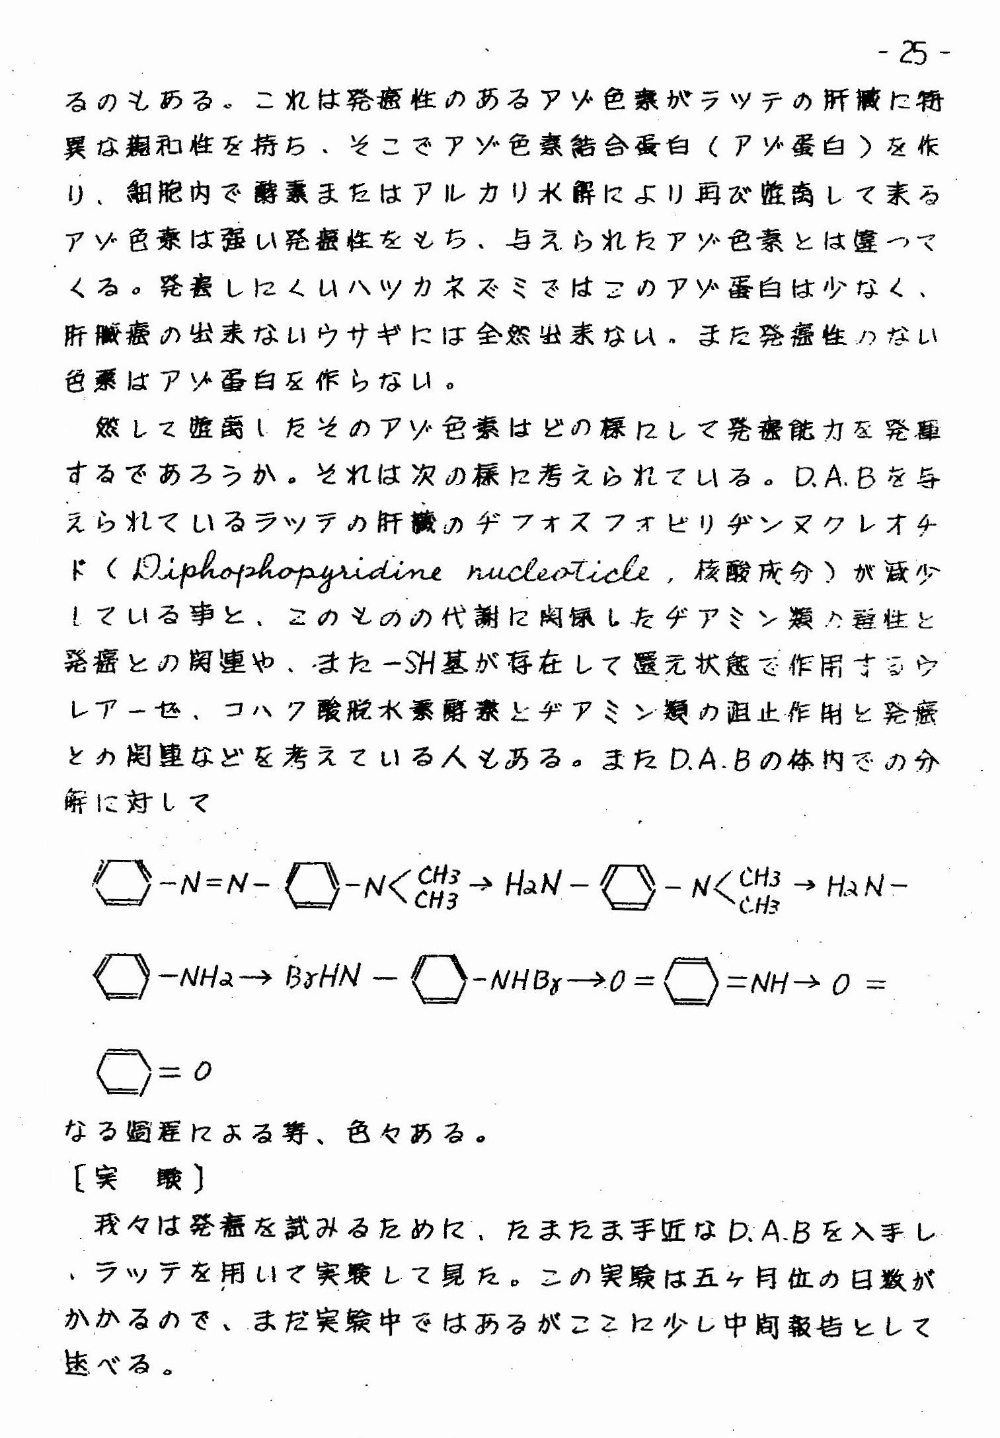 - 25 -
るのもある。これは発癌性のあるアゾ色素がラッテの肝臓に特
異な親和性を持ち、そこでアゾ色素結合蛋白（アゾ蛋白）を作
り、細胞内で酵素またはアルカリ水解により再び遊離して来る
アゾ色素は強い発癌性をもち、与えられたアゾ色素とは違つて
くる。発癌しにくいハツカネズミではこのアゾ蛋白は少なく、
肝臓癌の出来ないウサギには全然出来ない。また発癌性のない
色素はアゾ蛋白を作らない。
然して遊離したそのアゾ色素はどの様にして発癌能力を発揮
するであろうか。それは次の様に考えられている。D.A.Bを与
えられているラッテの肝臓のヂフォスフォピリヂンヌクレオチ
ド（Diphophopyridine nucleoticle，核酸成分）が減少
している事と、このものの代謝に関係したヂアミン類の毒性と
発癌との関連や、また－SH基が存在して還元状態で作用するウ
レアーゼ、コハク酸脱水素酵素とヂアミン類の阻止作用と発癌
との関連などを考えている人もある。またD.A.Bの体内での分
解に対して
-N=N- -N< CH3 CH3 → H2N - - N< CH3 CH3 → H2N -
-NH2 → BrHN - -NHBr → O = =NH → O =
= O
なる過程による等、色々ある。
［実　験］
我々は発癌を試みるために、たまたま手近なD.A.Bを入手し
、ラッテを用いて実験して見た。この実験は五ヶ月位の日数が
かかるので、まだ実験中ではあるがここに少し中間報告として
述べる。